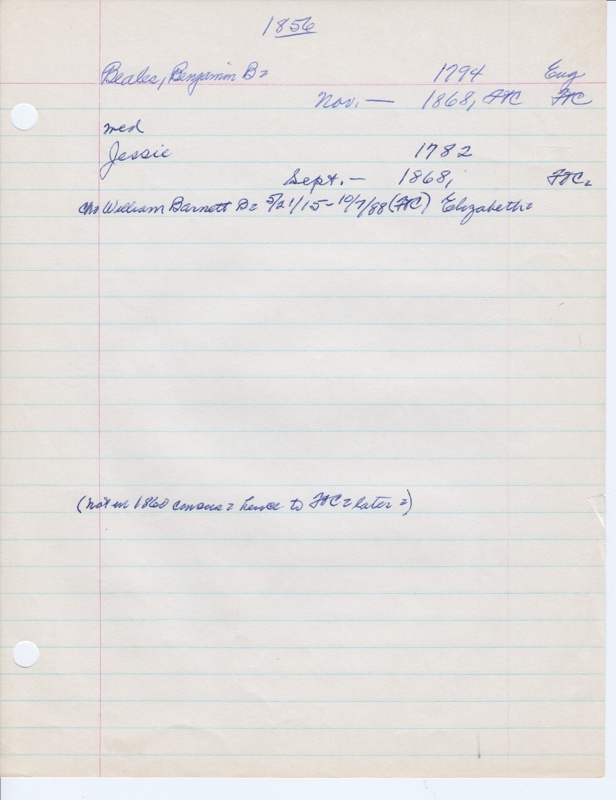 1856
Beales, Benjamin B= 1794 Eng
Nov. — 1868, FtC FtC
med
Jessie 1782
Sept. — 1868, FtC.
chs William Barnett B= 5/21/15 - 10/7/88 (FtC) Elizabeth=
(not in 1860 census = hence to FtC = later =)